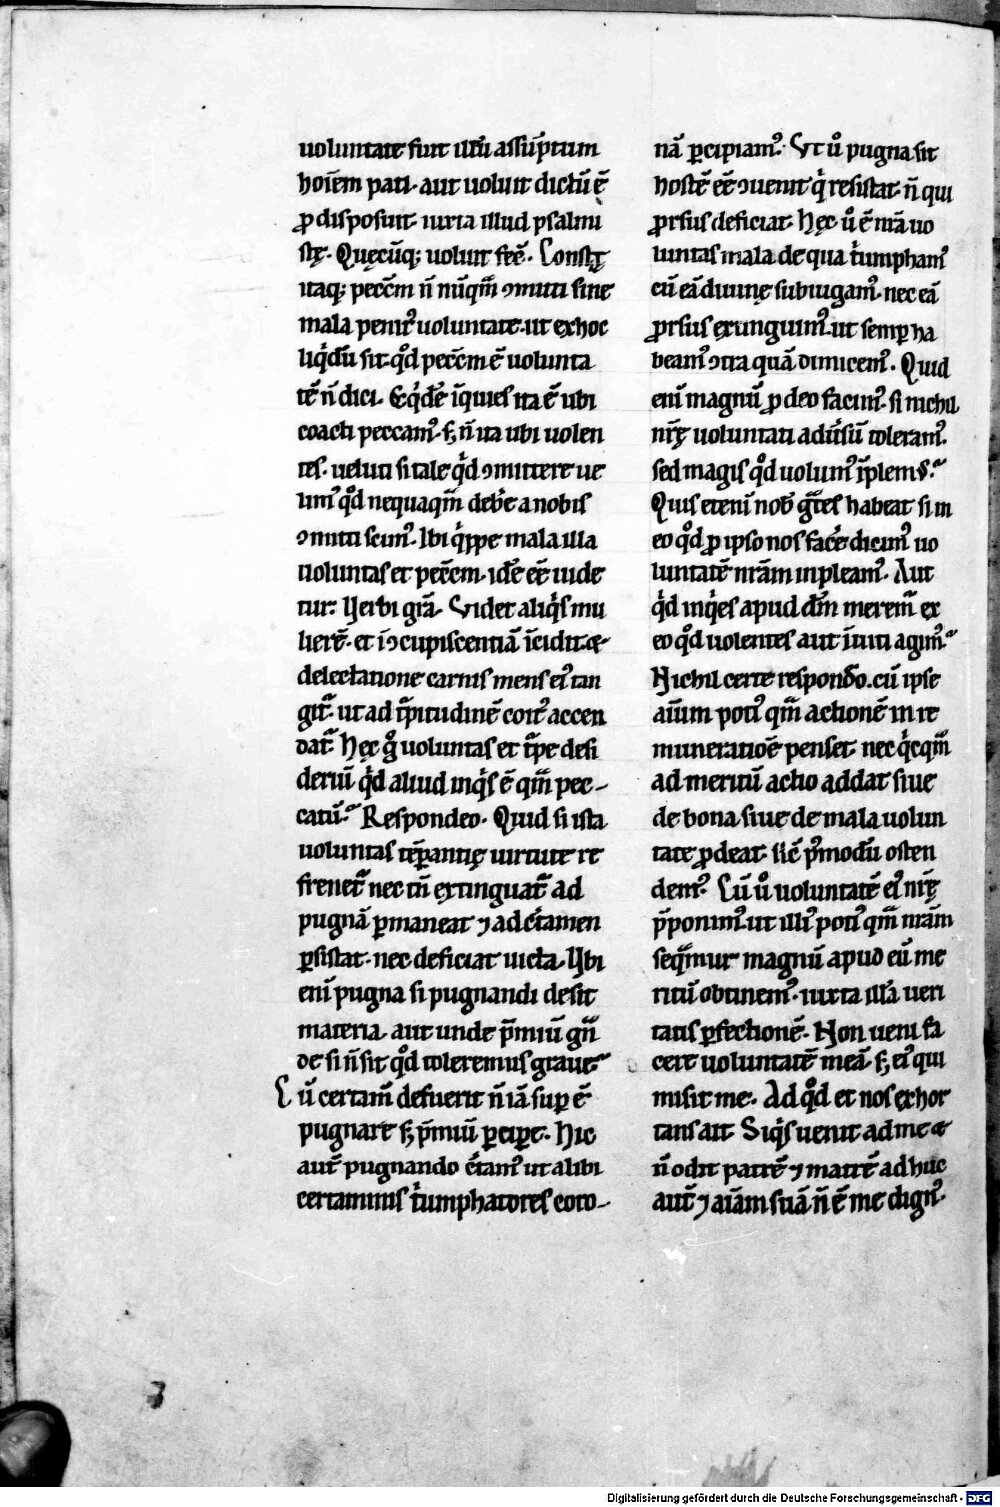 uoluntate fuit illū assūptum
hoīem pati. aut uoluit dictū ē
ꝓ disposuit. iuxta illud psalmi
stę. Quęcūq; uoluit fec̄. Constat
itaq; pecc̄m n̄ nūqm̄ ꝯmitti sine
mala penit᷒ uoluntate. ut ex hoc
liq̇dū sit. qd̊ pecc̄m ē uolunta
tē n̄ dici. Eq̇dē īquies ita ē ubi
coacti peccam᷒. s; n̄ ita ubi uolen
tes. ueluti si tale qd̊ ꝯmittere ue
lim᷒ qd̊ nequaqm̄ deb̄e a nobis
ꝯmitti scim᷒. Ibi q̇ppe mala illa
uoluntas et pecc̄m. idē eē uide
tur. Verbi grā. Videt aliq̇s mu
lierē. et ī ꝯcupiscentiā īcidit. &
delectatione carnis mens ei᷒ tan
git᷑. ut ad t᷑pitudinē coit᷒ accen
dat᷑. Hęc g̊ uoluntas et t᷑pe desi
deriū qd̊ aliud inq̇s ē qm̄ pec-
catū? Respondeo. Quid si ista
uoluntas tēperantię uirtute re
frenet᷑ nec tn̄ extinguat᷑ ad
pugnā ꝑmaneat ⁊ ad c̄tamen
ꝑsistat. nec deficiat uicta. Vbi
eni pugna si pugnandi desit
materia. aut unde p̄miū gn̄
de si n̄ sit qd̊ toleremus graue?
Cū certam̄ defuerit n̄ iā suꝑ ē
pugnare s; p̄miū ꝑciꝑe. Hic
aut̄ pugnando c̄tam᷒ ut alibi
certaminis ṫumphatores coro-
nā ꝑcipiam᷒. Vt ů pugna sit
hostē eē ꝯuenit q̇ resistat. n̄ qui
ꝓrsus deficiat. Hęc ů ē nrā uo
luntas mala de qua ṫumpham᷒
cū eā diuinę subiugam᷒. nec eā
ꝓrsus extinguim᷒. ut semꝑ ha
beam᷒ ꝯtra quā dimicem᷒. Quid
eni magnū ꝓ deo facim᷒. si nichil
nrę̄ uoluntati aduisū toleram᷒.
sed magis qd̊ uolum᷒ īplem᷒?
Quis etenī nob̄ gt̄es habeat si in
eo qd̊ ꝓ ipso nos facē dicim᷒ uo
luntatē nrām inpleam᷒. Aut
qd̊ inq̇es apud dm̄ merem᷑ ex
eo qd̊ uolentes aut īuiti agim᷒?
Nichil certe respondo. cū ipse
aiūm poti᷒ qm̄ actionē in re
muneratiōe penset. nec q̇cqm̄
ad meritū actio addat siue
de bona siue de mala uolun
tate ꝓdeat. sic̄ p᷒modū osten
dem᷒. Cū ů uoluntatē ei᷒ nrę̄
p̄ponim᷒. ut illi᷒ poti᷒ qm̄ nrām
seqm᷑ur magnū apud eū me
ritū obtinem᷒. iuxta illā ueri
tatis ꝑfectionē. Non ueni fa
cere uoluntatē meā. s; ei᷒ qui
misit me. Ad qd̊ et nos exhor
tans ait. Siq̇s uenit ad me &
n̄ odit patrē ⁊ matrē adhuc
aut̄ ⁊ aiām suā n̄ ē me dign᷒.
Digitalisierung gefördert durch die Deutsche Forschungsgemeinschaft - DFG